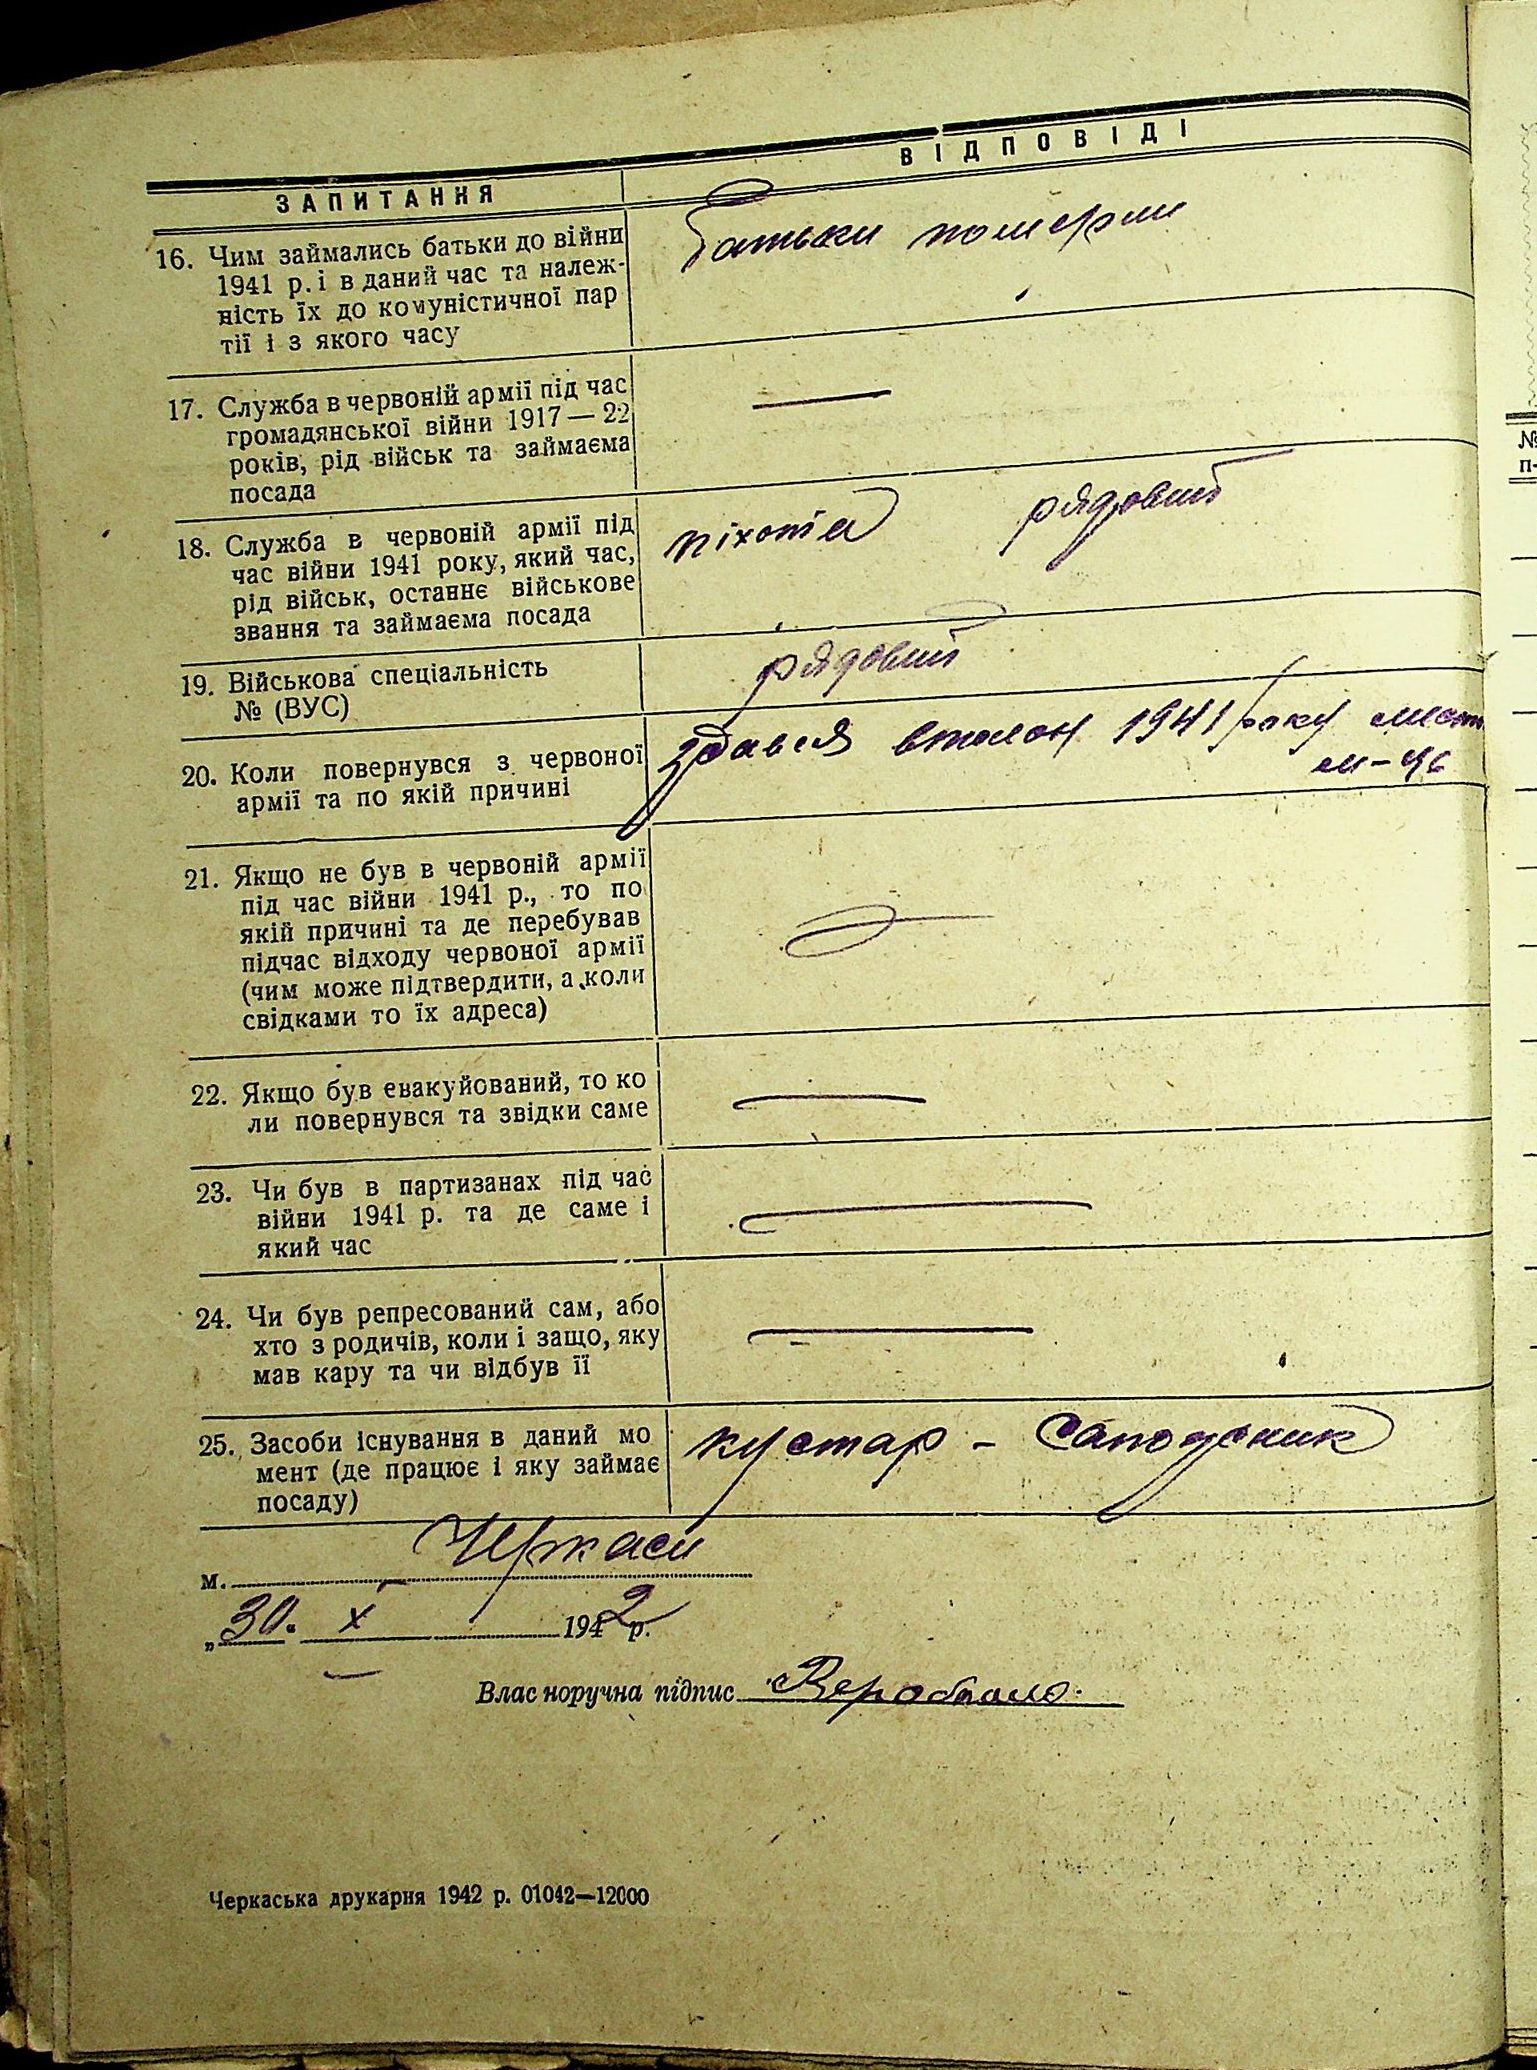 ЗАПИТАННЯ
ВІДПОВІДІ
16. Чим займались батьки до війни
1941 р. і в даний час та належ-
ність їх до комуністичної пар
тії і з якого часу
Батьки померли
17. Служба в червоній армії під час
громадянської війни 1917 — 22
років, рід військ та займаєма
посада
—
18. Служба в червоній армії під
час війни 1941 року, який час,
рід військ, останнє військове
звання та займаєма посада
піхота рядовий
19. Військова спеціальність
№ (ВУС)
рядовий
20. Коли повернувся з червоної
армії та по якій причині
здався вполон 1941 року
21. Якщо не був в червоній армії
під час війни 1941 р., то по
якій причині та де перебував
підчас відходу червоної армії
(чим може підтвердити, а коли
свідками то їх адреса)
—
22. Якщо був евакуйований, то ко
ли повернувся та звідки саме
—
23. Чи був в партизанах під час
війни 1941 р. та де саме і
який час
—
24. Чи був репресований сам, або
хто з родичів, коли і защо, яку
мав кару та чи відбув її
—
25. Засоби існування в даний мо
мент (де працює і яку займає
посаду)
кустар – Саподжник
м. Черкаси
„30. X 1942 р.
Влас норучна підпис
Черкаська друкарня 1942 р. 01042—12000
№
п-